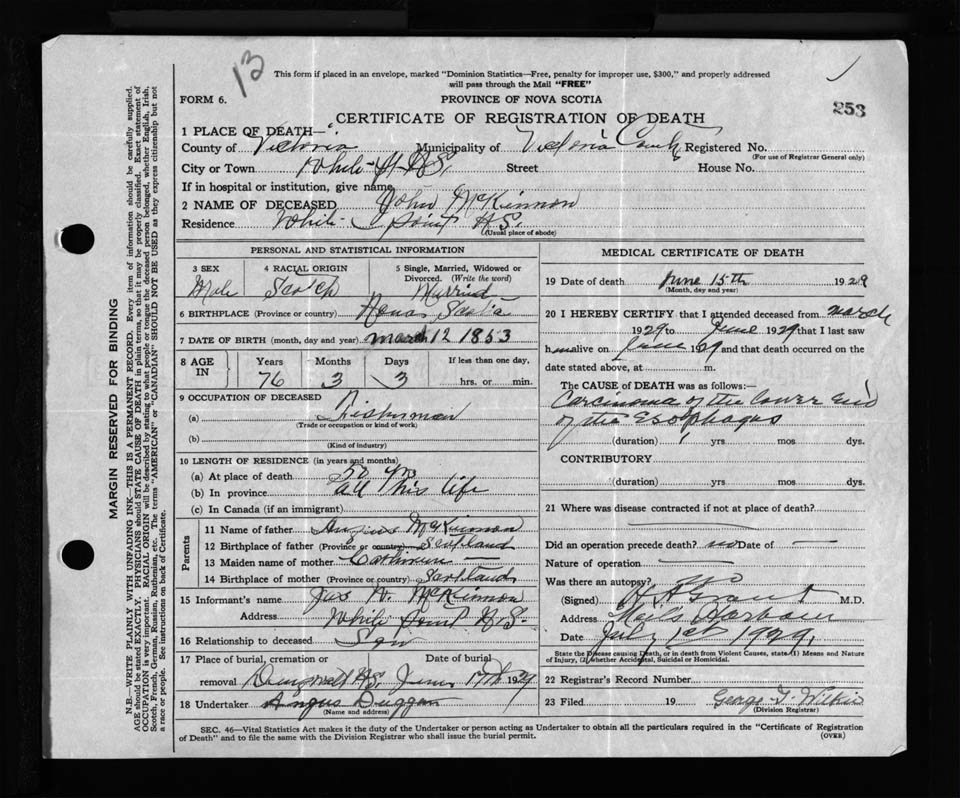 13
This form if placed in an envelope, marked "Dominion Statistics—Free, penalty for improper use, $300," and properly addressed
will pass through the Mail "FREE"
FORM 6. PROVINCE OF NOVA SCOTIA 253
CERTIFICATE OF REGISTRATION OF DEATH
1 PLACE OF DEATH—
County of Victoria Municipality of Victoria County Registered No.
(For use of Registrar General only)
City or Town White Pt N.S. Street House No.
If in hospital or institution, give name
2 NAME OF DECEASED John McKinnon
Residence White Point N.S.
(Usual place of abode)
PERSONAL AND STATISTICAL INFORMATION
3 SEX 4 RACIAL ORIGIN 5 Single, Married, Widowed or
Divorced. (Write the word)
Male Scotch Married
6 BIRTHPLACE (Province or country) Nova Scotia
7 DATE OF BIRTH (month, day and year) March 12 1853
8 AGE IN Years Months Days If less than one day,
76 3 3 hrs. or min.
9 OCCUPATION OF DECEASED
(a) Fisherman
(Trade or occupation or kind of work)
(b)
(Kind of industry)
10 LENGTH OF RESIDENCE (in years and months)
(a) At place of death 50 yrs
(b) In province all his life
(c) In Canada (if an immigrant)
Parents
11 Name of father Angus McKinnon
12 Birthplace of father (Province or country) Scotland
13 Maiden name of mother Catherine —
14 Birthplace of mother (Province or country) Scotland
15 Informant's name McKinnon
Address White Point N.S.
16 Relationship to deceased Son
17 Place of burial, cremation or Date of burial
removal Dingwall N.S. June 17th 1929
18 Undertaker Angus Duggan
(Name and address)
MEDICAL CERTIFICATE OF DEATH
19 Date of death June 15th 1929
(Month, day and year)
20 I HEREBY CERTIFY that I attended deceased from March
1929 to June 1929 that I last saw
him alive on June 1929 and that death occurred on the
date stated above, at m.
The CAUSE of DEATH was as follows:—
Carcinoma of the lower end
of the Esophagus
(duration) yrs mos dys.
CONTRIBUTORY
(duration) yrs. mos. dys.
21 Where was disease contracted if not at place of death?
Did an operation precede death? no Date of —
Nature of operation —
Was there an autopsy? no
(Signed) Grant M.D.
Address Neils Harbour
Date July 1st 1929
State the Disease causing Death, or in death from Violent Causes, state (1) Means and Nature
of Injury, (2) whether Accidental, Suicidal or Homicidal.
22 Registrar's Record Number
23 Filed 19 George T. Wilkie
(Division Registrar)
SEC. 46—Vital Statistics Act makes it the duty of the Undertaker or person acting as Undertaker to obtain all the particulars required in the "Certificate of Registration
of Death" and to file the same with the Division Registrar who shall issue the burial permit. (OVER)
MARGIN RESERVED FOR BINDING
N.B.—WRITE PLAINLY WITH UNFADING INK—THIS IS A PERMANENT RECORD. Every item of information should be carefully supplied.
AGE should be stated EXACTLY. PHYSICIANS should STATE CAUSE OF DEATH in plain terms, so that it may be properly classified. Exact statement of
OCCUPATION is very important. RACIAL ORIGIN will be described by stating to what people or tongue the deceased person belonged, whether English, Irish,
Scotch, French, German, Russian, Ruthenian, etc. The terms "AMERICAN" or "CANADIAN" SHOULD NOT BE USED as they express citizenship but not
a race or people. See instructions on back of Certificate.